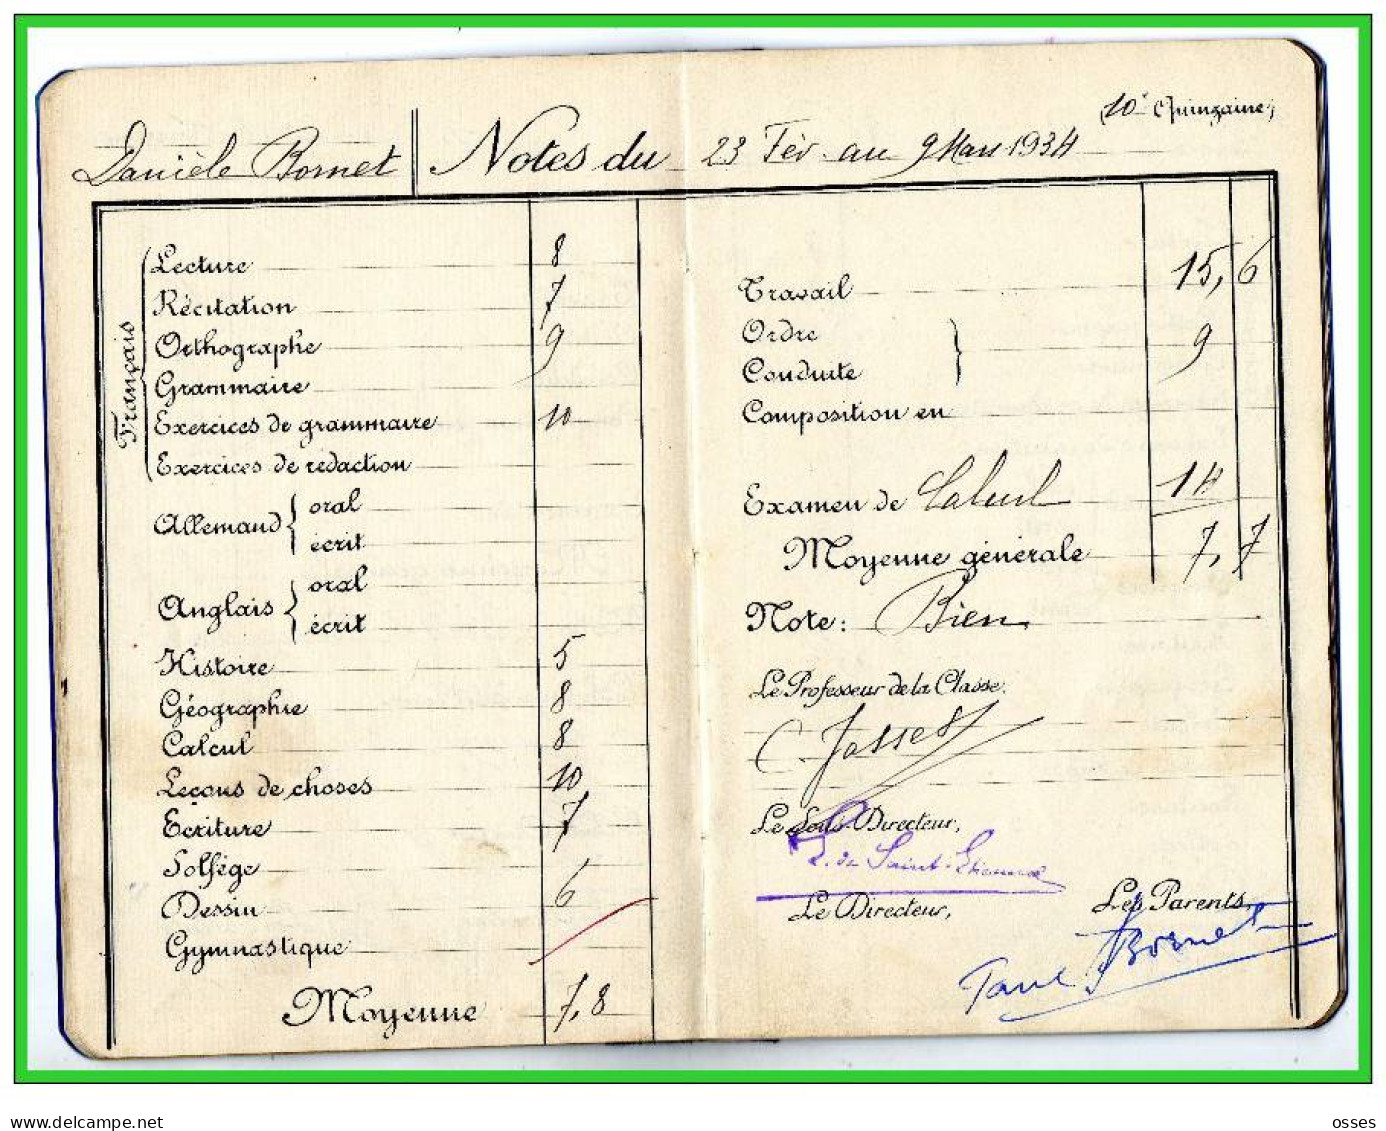 (10e Quinzaine)
Danièle Bornet Notes du 23 Fév. au 9 Mars 1934
Français
Lecture 8
Récitation 7
Orthographe 9
Grammaire
Exercices de grammaire 10
Exercices de redaction
Allemand { oral
écrit
Anglais { oral
écrit
Histoire 5
Géographie 8
Calcul 8
Leçons de choses 10
Ecriture 7
Solfège
Dessin 6
Gymnastique
Moyenne 7,8
Travail 15,6
Ordre
Conduite } 9
Composition en
Examen de Calcul 14
Moyenne générale 7,7
Note: Bien
Le Professeur de la Classe:
C. Josset
Le Sous-Directeur,
L. de Saint-Etienne
Le Directeur, Les Parents,
Paul Bornet
www.delcampe.net osses